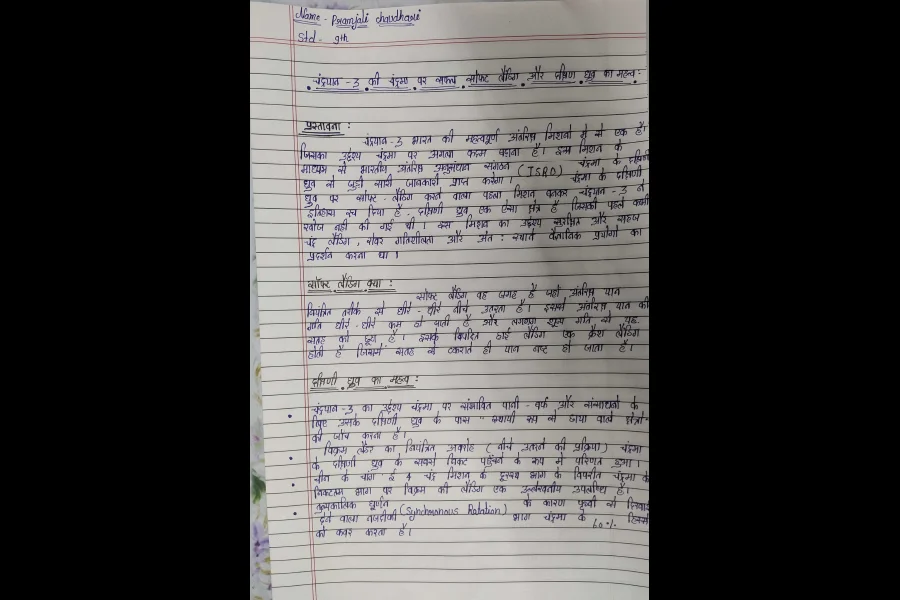 Name - Pranjali chaudhari
Std - 9th
चंद्रयान - 3 की चंद्रमा पर सफल सॉफ्ट लैंडिंग और दक्षिण ध्रुव का महत्व :-
प्रस्तावना :
चंद्रयान - 3 भारत की महत्वपूर्ण अंतरिक्ष मिशनों में से एक है।
जिसका उद्देश्य चंद्रमा पर अगला कदम बढ़ाना है। इस मिशन के
माध्यम से भारतीय अंतरिक्ष अनुसंधान संगठन (ISRO) चंद्रमा के दक्षिणी
ध्रुव से जुड़ी सारी जानकारी प्राप्त करेगा। चंद्रमा के दक्षिणी
ध्रुव पर सॉफ्ट - लैंडिंग करने वाला पहला मिशन बनकर चंद्रयान - 3 ने
इतिहास रच दिया है - दक्षिणी ध्रुव एक ऐसा क्षेत्र है जिसकी पहले कभी
खोज नहीं की गई थी। इस मिशन का उद्देश्य सुरक्षित और सहज
चंद्र लैंडिंग, रोवर गतिशीलता और अंत : स्थाने वैज्ञानिक प्रयोगों का
प्रदर्शन करना था।
सॉफ्ट लैंडिंग क्या :
सॉफ्ट लैंडिंग वह जगह है जहां अंतरिक्ष यान
नियंत्रित तरीके से धीरे - धीरे नीचे उतरता है। इसमें अंतरिक्ष यान की
गति धीरे - धीरे कम हो जाती है और लगभग शून्य गति से यह
सतह को छूता है। इसके विपरित हार्ड लैंडिंग एक क्रैश लैंडिंग
होती है जिसमें सतह से टकराते ही यान नष्ट हो जाता है।
दक्षिणी ध्रुव का महत्व :
चंद्रयान - 3 का उद्देश्य चंद्रमा पर संभावित पानी - बर्फ और संसाधनों के
लिए उसके दक्षिणी ध्रुव के पास " स्थायी रूप से छाया वाले क्षेत्रों
की जाँच करना है।
विक्रम लैंडर का नियंत्रित अवरोह ( नीचे उतरने की प्रक्रिया) चंद्रमा
के दक्षिणी ध्रुव के सबसे निकट पहुँचने के रूप में परिणत हुआ।
चीन के चांग' ई 4 चंद्र मिशन के दूरस्थ भाग के विपरीत चंद्रमा के
निकटतम भाग पर विक्रम की लैंडिंग एक उल्लेखनीय उपलब्धि है।
तुल्यकालिक घूर्णन (Synchronous Rotation) के कारण पृथ्वी से दिखाई
देने वाला नजदीकी भाग चंद्रमा के 60% हिस्से
को कवर करता है।